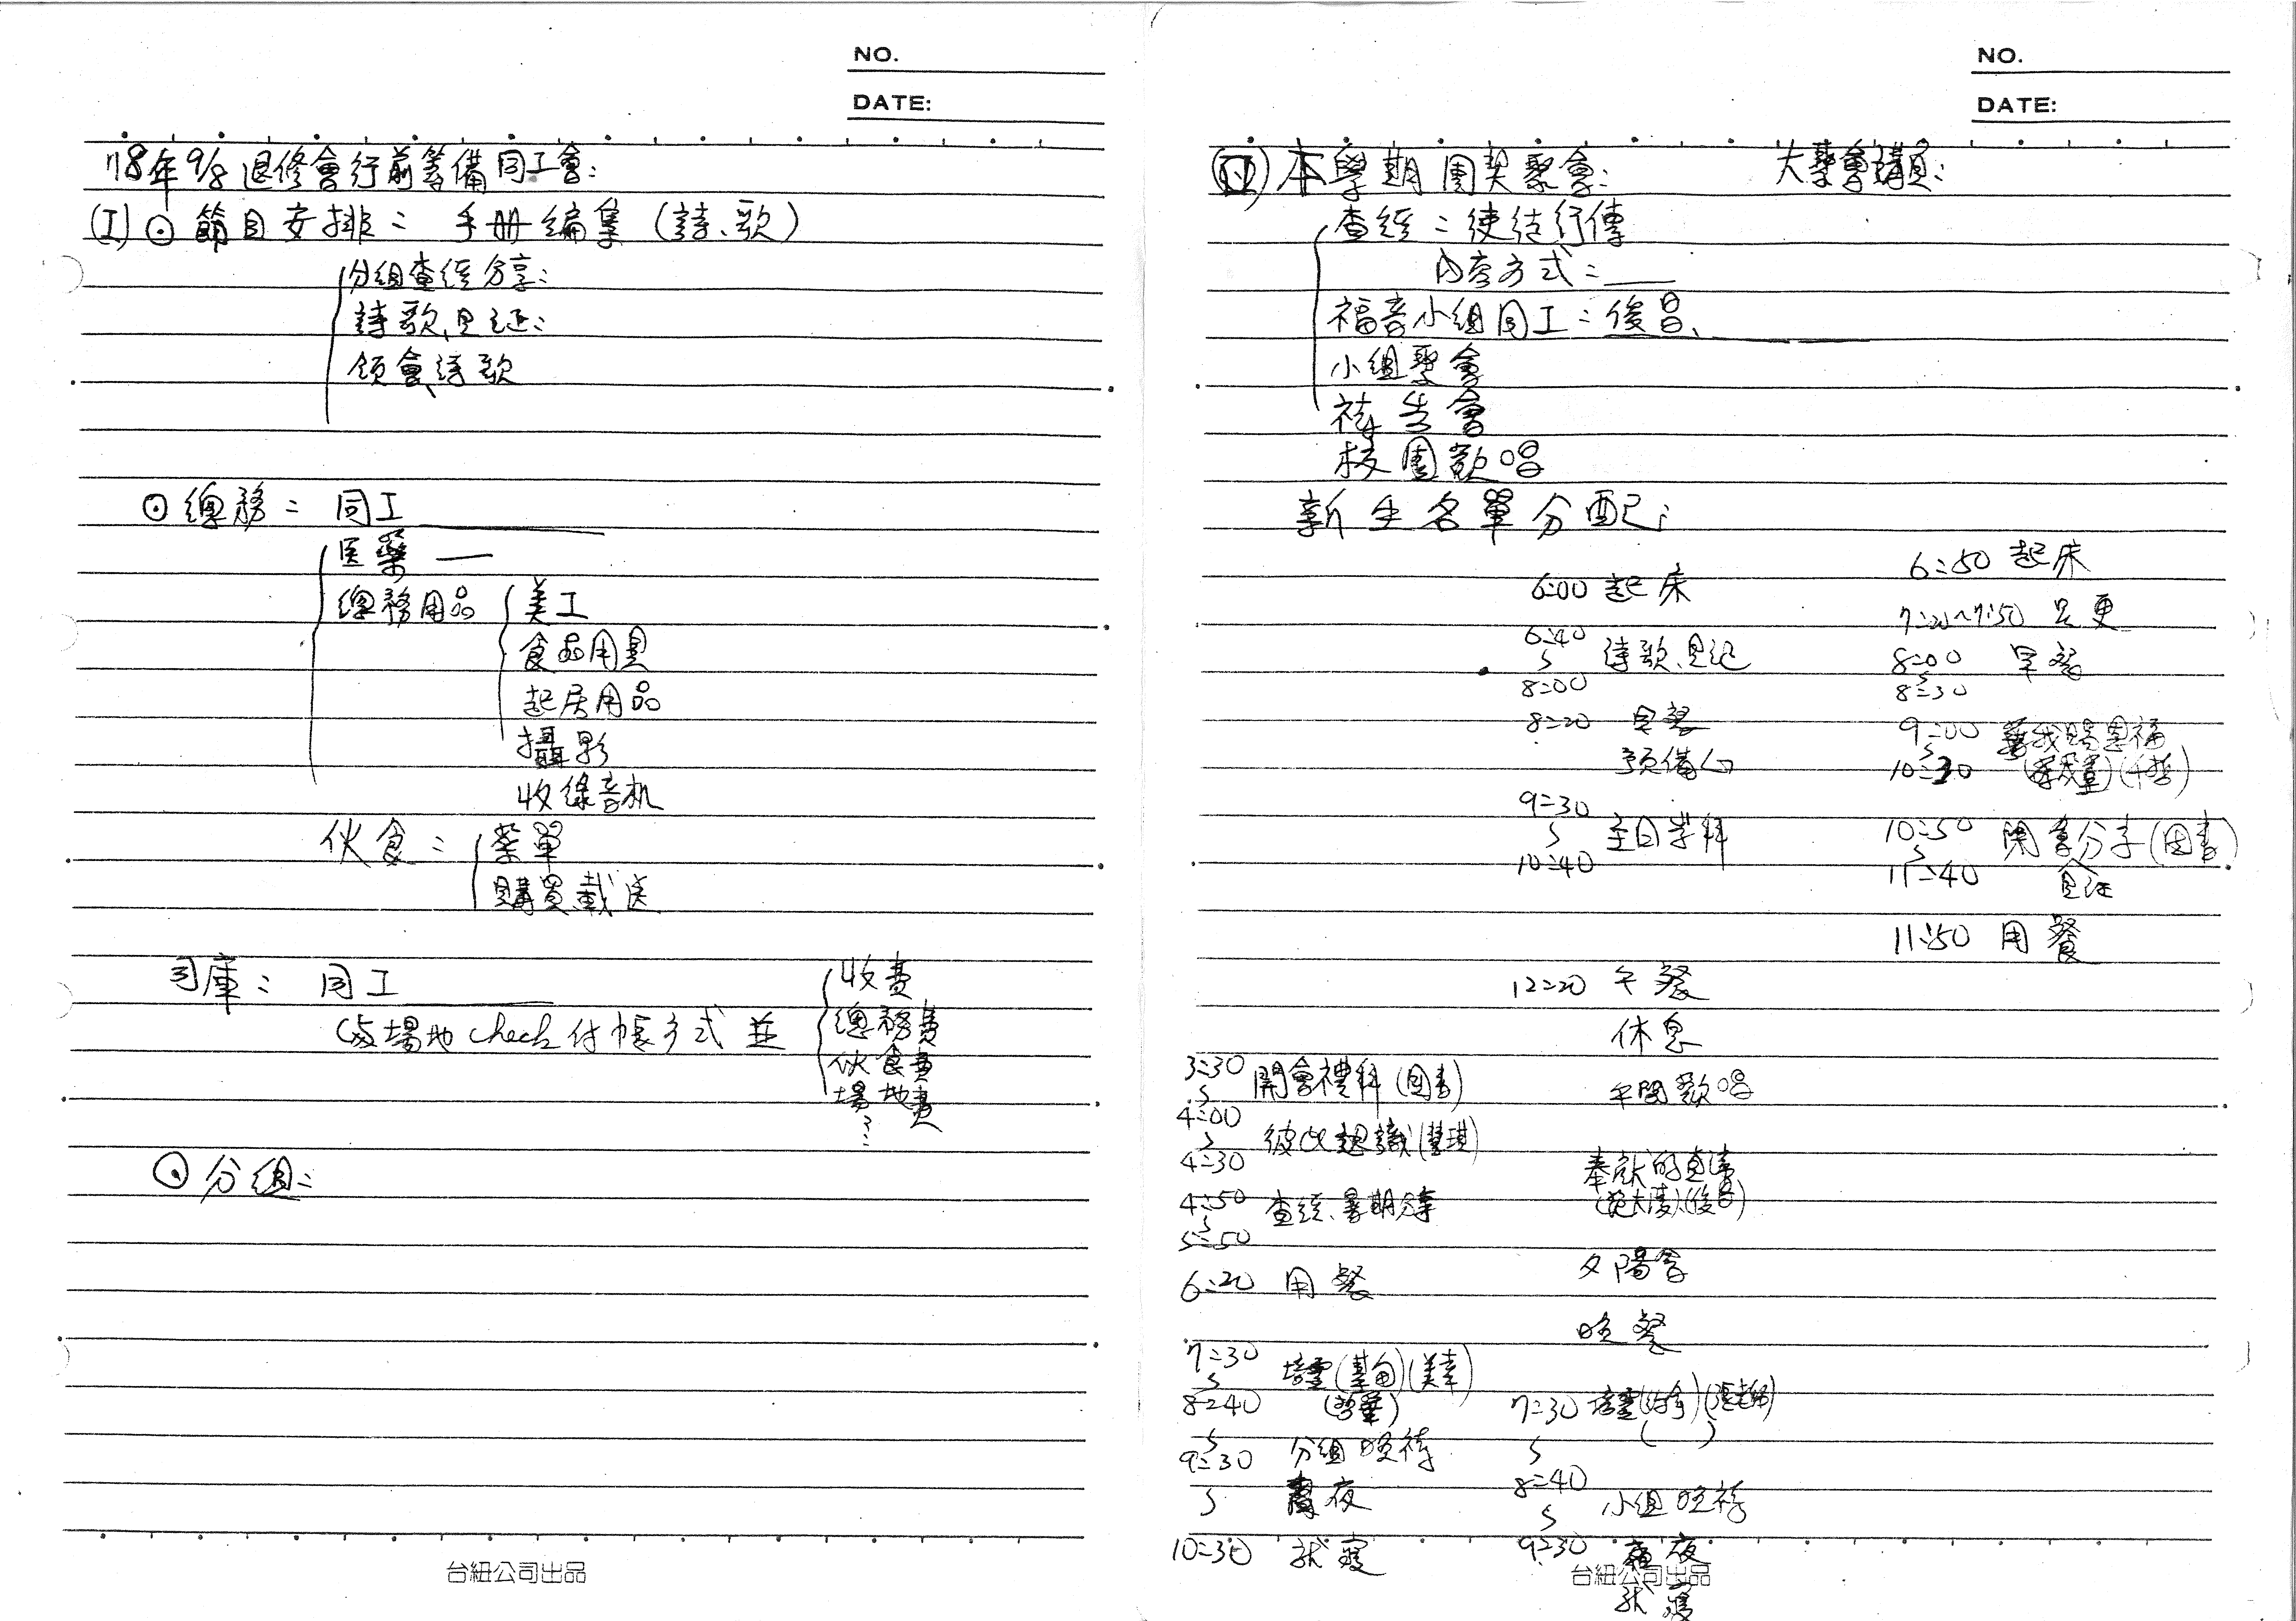 NO.
DATE:
78年9/8退修會行前籌備同工會:
(I) ⊙ 節目安排: 手册編集(詩、歌)
分組查經分享:
詩歌、見証:
領會、詩歌
⊙ 總務: 同工
医藥 —
總務用品 美工
食品用具
起居用品
攝影
收錄音机
伙食: 菜單
購買載送
司庫: 同工
場地check付帳方式並
收費
總務費
伙食費
場地費
⊙ 分組:
台紐公司出品
NO.
DATE:
本學期團契聚會: 大聚會講員:
查經: 使徒行傳
內容方式:
福音小組同工: 俊昌、
小組聚會
禱告會
校園歡唱
新生名單分配:
3:30
4:00 開會禮拜
4:30 彼此認識
4:50
5:50 查經、暑期分享
6:20 用餐
7:30
8:40 培靈
9:30 分組晚禱
夜
10:30 就寢
6:00 起床
6:40
8:00 詩歌、見証
8:20 早餐
預備心
9:30
10:40 主日崇拜
12:20 午餐
休息
午間歡唱
奉獻的真
夕陽會
晚餐
7:30 培靈
8:40
小組晚禱
9:30 夜
就寢
6:50 起床
7:20~7:50 更
8:00
8:30 早餐
9:00
10:30
10:50
11:40 閉會分享
見証
11:50 用餐
台紐公司出品